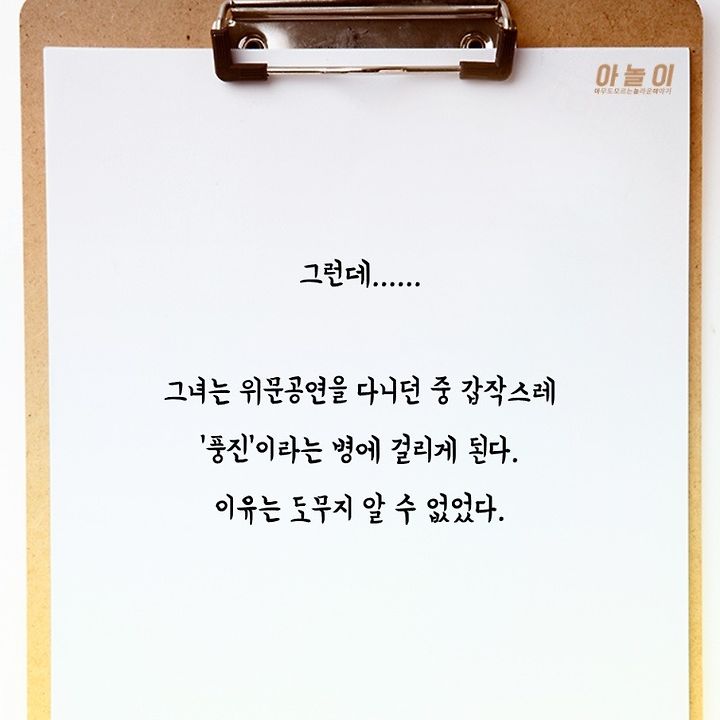 아놀이
아무도모르는놀라운이야기
그런데......
그녀는 위문공연을 다니던 중 갑작스레
'풍진'이라는 병에 걸리게 된다.
이유는 도무지 알 수 없었다.